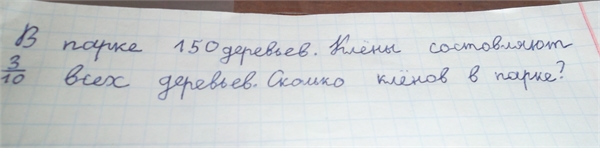 В парке 150 деревьев. Клёны состовляют
3/10 всех деревьев. Сколко клёнов в парке?